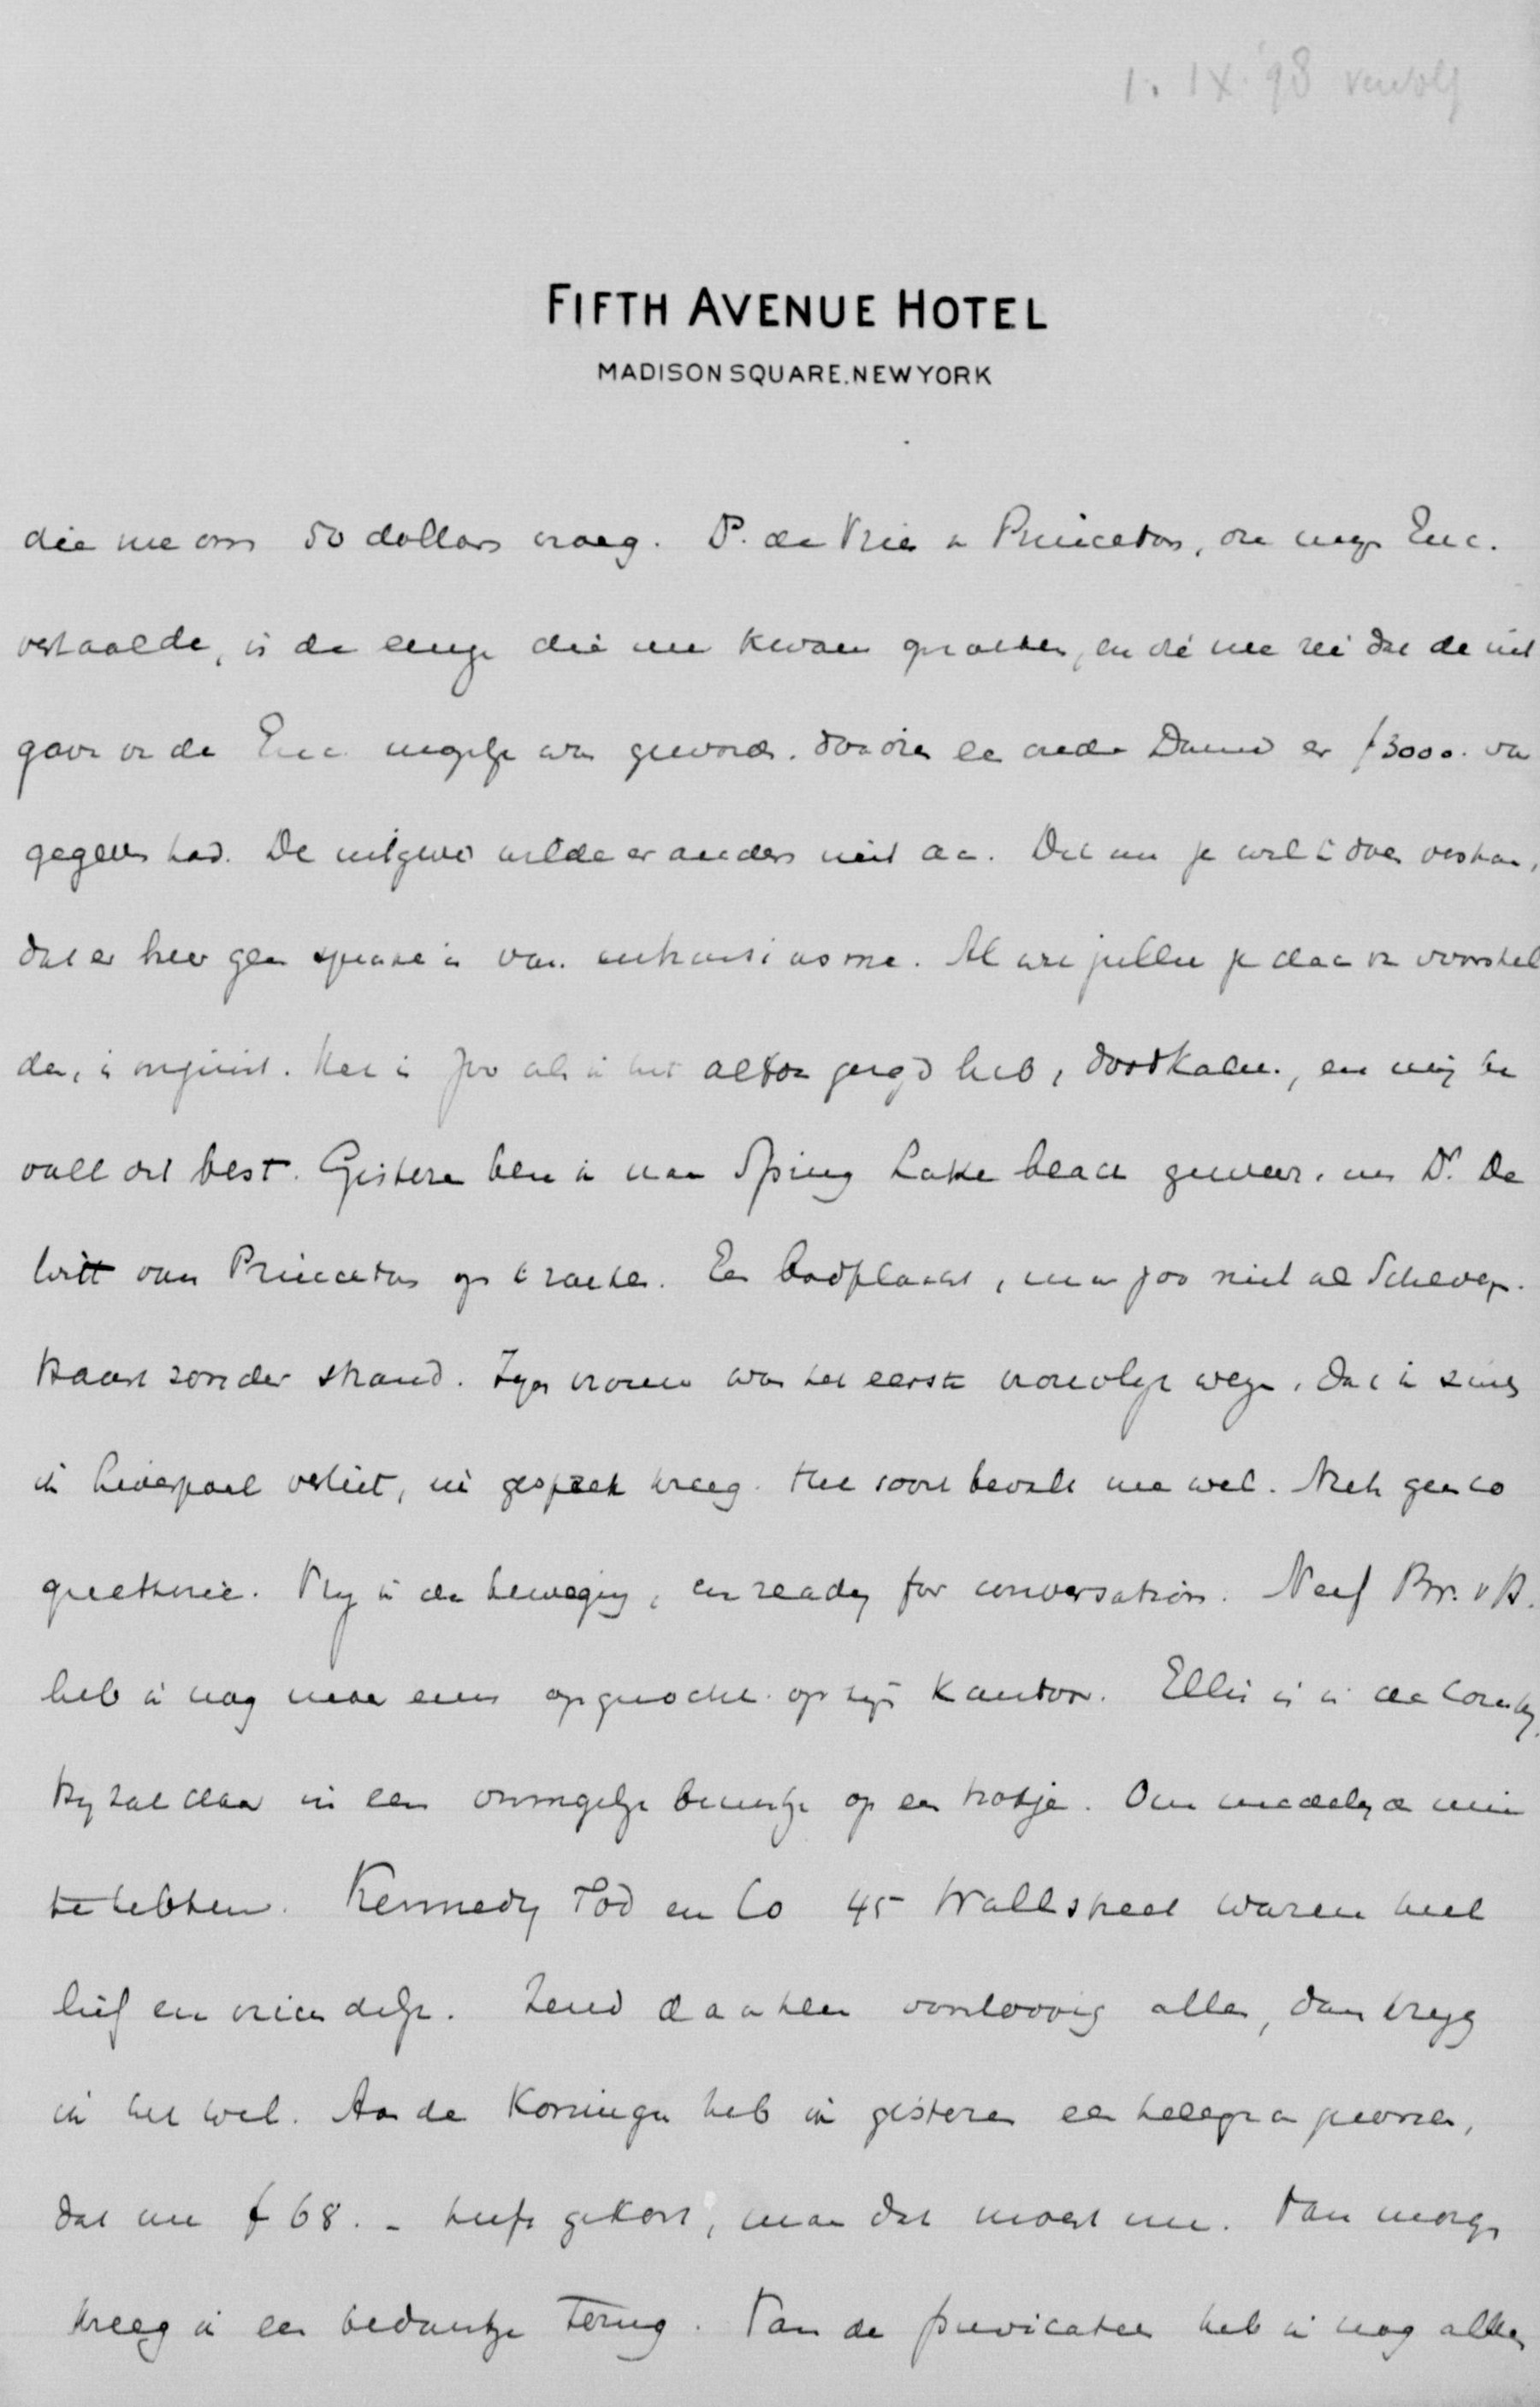 1. IX '98 vervolg
FIFTH AVENUE HOTEL
MADISON SQUARE. NEW YORK
die me om 50 dollars vraeg. P. de Vries v Princeton, die mijn Enc.
vertaalde, is de eenige die me kwam opzoeken, en die me zei dat de uit
gave v de Enc. mogelijk was geworden. doordien een oude Dame er f 3000. voor
gegeven had. De uitgever wilde er anders niet aan. Dit nu je wel te doen verstaan,
dat er hier geen sprake is van enthusiasme. Al wie jullie je daar v voorstel
den, is onjuist. Het is zoo als ik het altoos gezegd heb, doodkalm, en mij be
valt dit best. Gisteren ben ik naar Spring Lake beach geweest, om Dr. De
Witt van Princeton op te zoeken. Een badplaats, maar zoo niet als Scheven.
Kaart zonder strand. Zijn vrouw was het eerste vrouwelijk wezen, dat ik sinds
ik Liverpool verliet, in gesprek kreeg. Het soort bevalt me wel. Niets geen co
quetterie. Vrij in de beweging, en ready for conversation. Neef Br. v B.
heb ik nog maar eens opgezocht op zijn kantoor. Ellis is in de Country.
Hij zat daar in een onmogelijk buurtje op een hokje. Om medelijden mee
te hebben. Kennedy Tod en Co 45 Wallstreet waren heel
lief en vriendelijk. Zend daarheen voorloopig alles, dan krijg
ik het wel. Aan de Koningin heb ik gisteren een telegram gezonden,
dat me f 68.- heeft gekost, maar dat moest nu. Van morgen
kreeg ik een bedankje terug. Van de predicaten heb ik nog alles